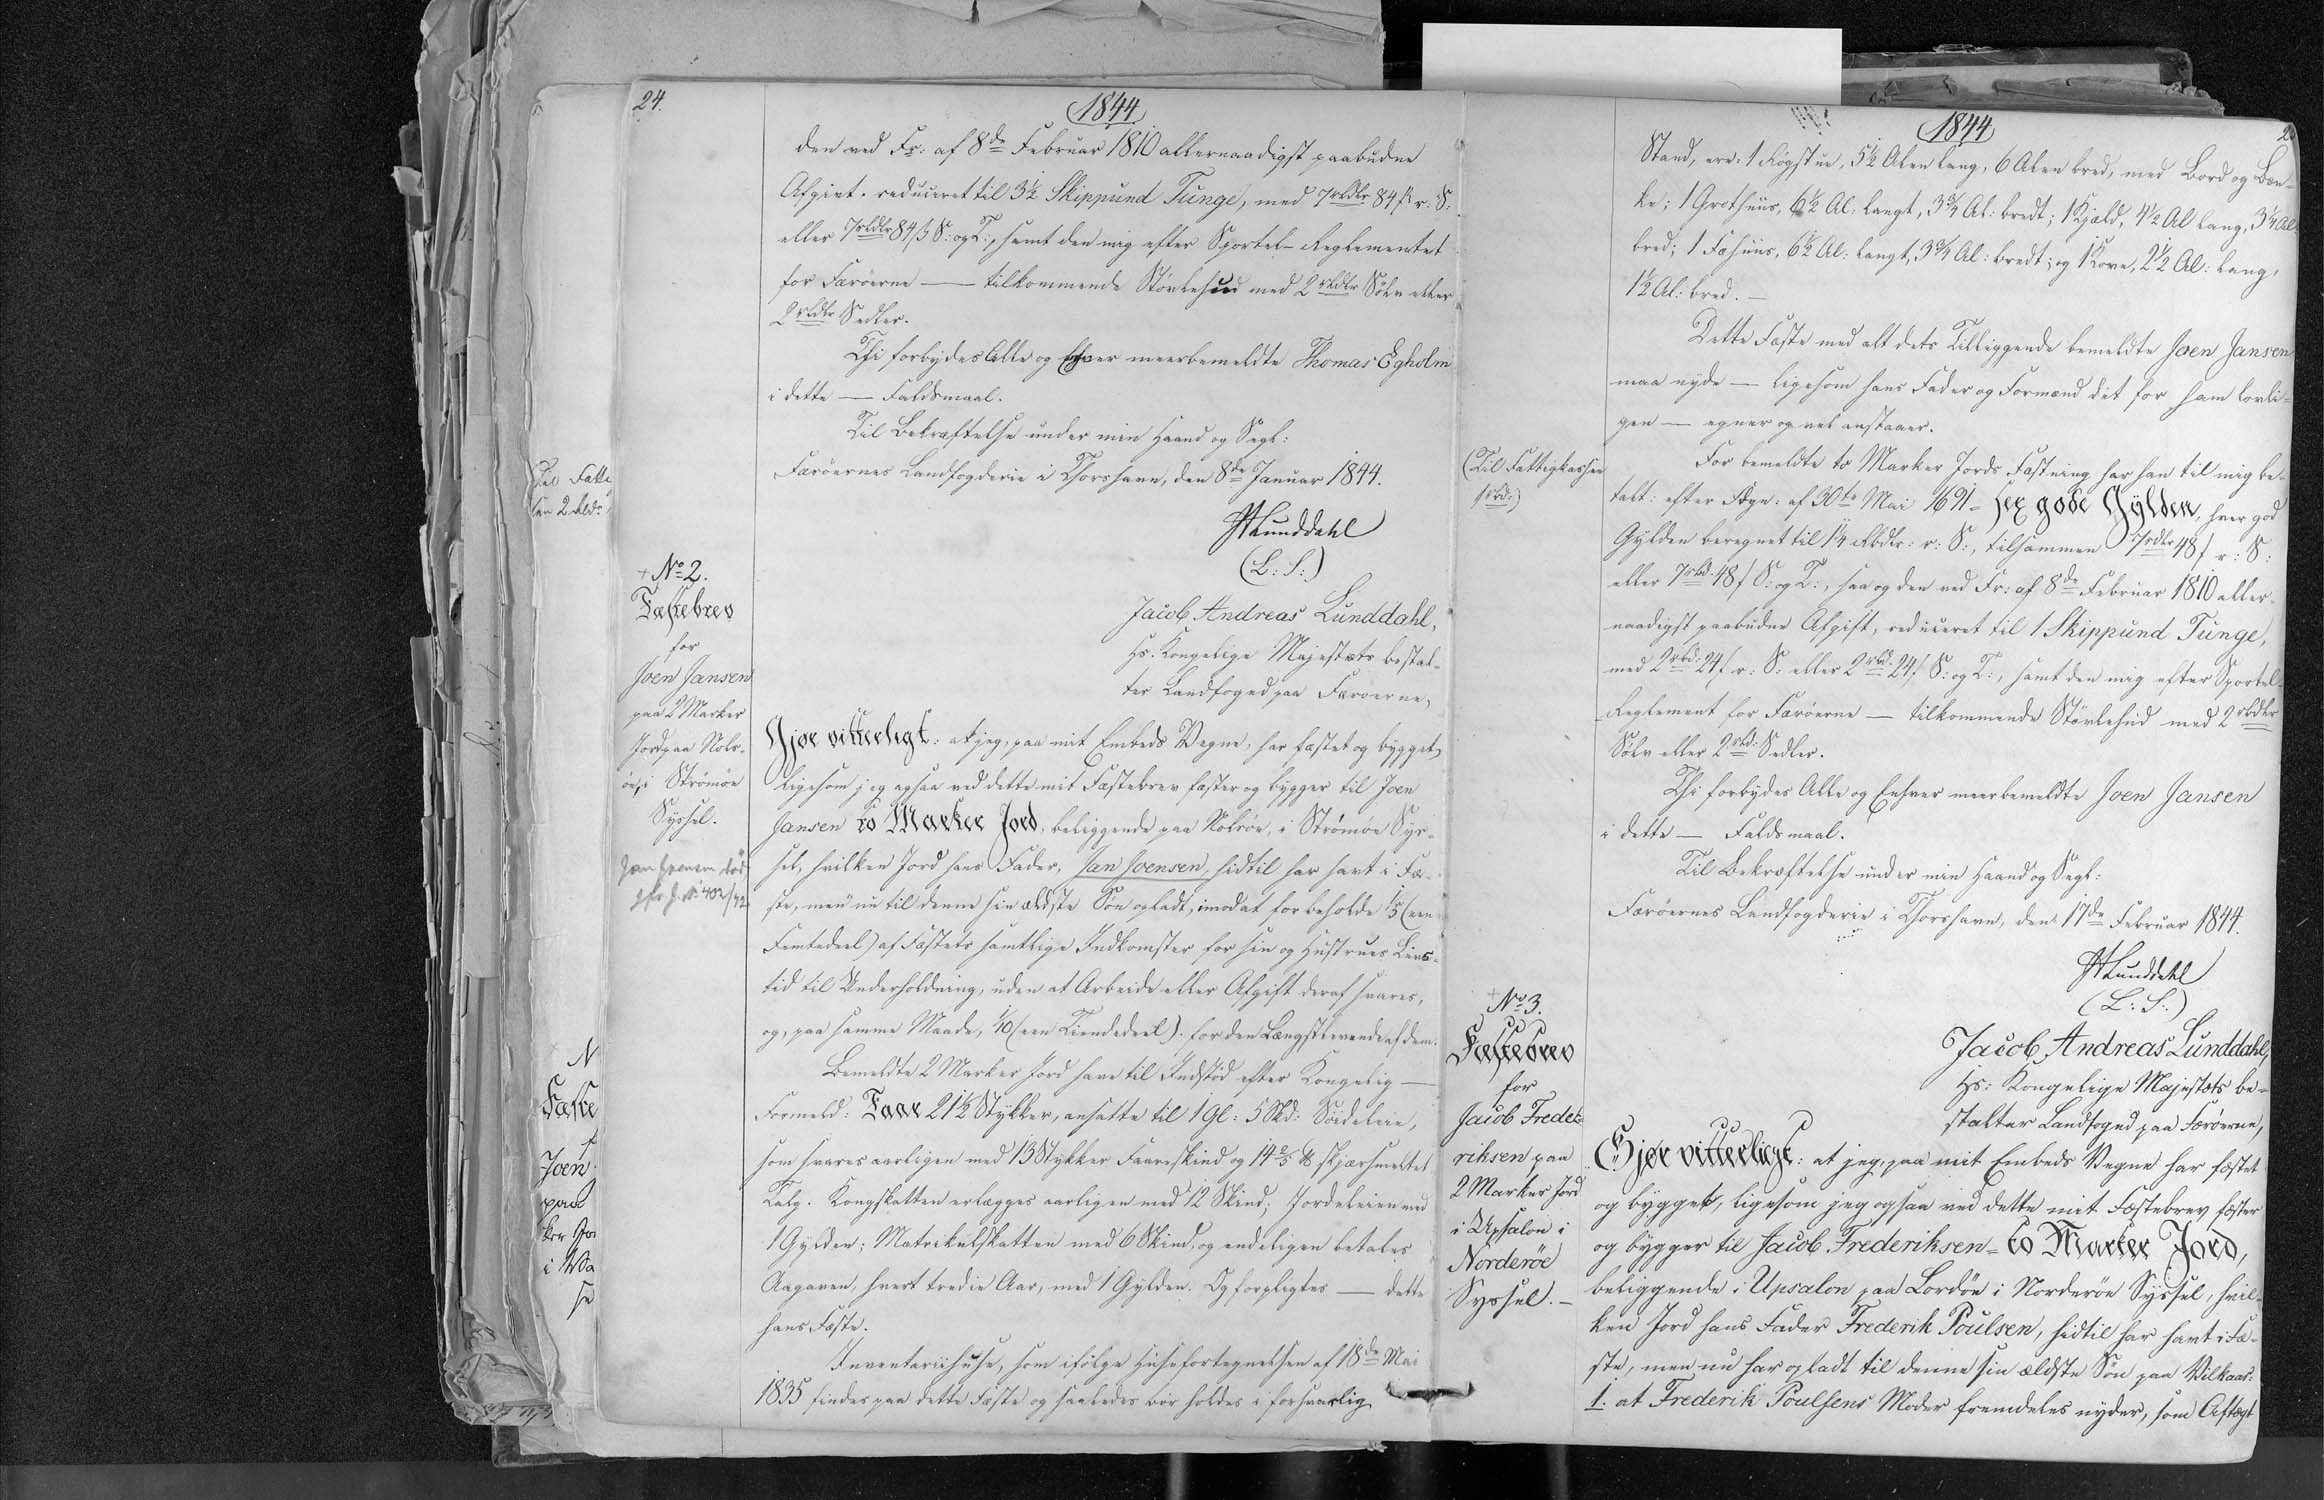 24.
1844
den ved Fr: af 8de Februar 1810 allernaadigst paabudne
Afgivt, reduceret til 3½ Skippund Tunge, med 7rbdlr 84 ß r: S:
eller 7rbdlr 84 ß S: og T:, samt den mig efter Sportel-Reglementet
for Færöerne — tilkommende Støvlehud med 2 rbdlr Sölv eller
2 rbdlr Sedler.
Thi forbydes Alle og Enhver meerbemeldte Thomas Egholm
i dette — Faldsmaal.
Til Bekræftelse under min Haand og Segl:
Færöernes Landfogderie i Thorshavn, den 8de Januar 1844.
Lunddahl
(L: S:)
+ No 2.
Fæstebrev
for
Joen Jansen
paa 2 Marker
Jord paa Nols-
öe, i Strömöe
Syssel.
Jan Joensen död
J. No 402/42
Jacob Andreas Lunddahl,
Hs. Kongelige Majestæts bestal-
ter Landfoged paa Færöerne,
Gjør vitterligt: at jeg, paa mit Embeds Vegne, har fæstet og bygget,
ligesom jeg ogsaa ved dette mit Fæstebrev fæster og bygger til Joen
Jansen to Marker Jord, beliggende paa Nolsöe, i Strömöe Sys-
sel, hvilken Jord hans Fader, Jan Joensen, hidtil har havt i Fæ-
ste, men nu til denne sin ældste Søn opladt, imod at forbeholde 1/5 (een
Femtedeel) af Fæstets samtlige Indkomster for sin og Hustrues Livs-
tid til Underholdning, uden at Arbeide eller Afgift deraf svares,
og, paa samme Maade, 1/10 (een Tiendedeel) for den Længstlevende af dem.
Bemeldte 2 Marker Jord have til Indstöd efter Kongelig —
Formeld: Faar 21½ Stykker, ansatte til 1 Gl: 5 Skd: Söideleie,
som svares aarligen med 13 Stykker Faareskind og 14 2/5 ℔ skjærsmeltet
Talg. Kongskatten erlægges aarligen med 12 Skind; Jordeleien med
1 Gylden; Matrikulskatten med 6 Skind, og endeligen betales
Aagaven, hvert tredie Aar, med 1 Gylden. Og forpligtes — dette
hans Fæste.
Inventariihuse, som ifölge Husefortegnelsen af 18de Mai
1835 findes paa dette Fæste og saaledes bör holdes i forsvarlig
1844
Stand, ere: 1 Rögstue, 5½ Alen lang, 6 Alen bred, med Bord og Bæn-
ke; 1 Grothuus, 6½ Al: langt, 3¾ Al: bredt; 1 Hjald, 4½ Al lang, 3¼ Al
bred; 1 Fæhuus, 6½ Al: langt, 3¾ Al: bredt; og 1 Kove, 2½ Al: lang,
1½ Al: bred. —
Dette Fæste med alt dets Tilliggende bemeldte Joen Jansen
maa nyde — ligesom hans Fader og Formænd det for ham lovli-
gen — egner og vel anstaaer.
(Til Fattigkassen
1 rbd:)
For bemeldte to Marker Jords Fæstning har han til mig be-
talt: efter Rgn: af 30te Mai 1691 - sex gode Gylden, hver god
Gylden beregnet til 1¼ Rbdlr: r: S:, tilsammen 7 rdlr 48 ß r: S:
eller 7 rbd: 48 ß S: og T:, saa og den ved Fr: af 8de Februar 1810 aller-
naadigst paabudne Afgift, reduceret til 1 Skippund Tunge,
med 2 rbd: 24 ß r: S: eller 2 rbd: 24 ß S: og T:, samt den mig efter Sportel-
Reglement for Færöerne — tilkommende Støvlehud med 2 rbdlr
Sölv eller 2 rbd: Sedler.
Thi forbydes Alle og Enhver meerbemeldte Joen Jansen
i dette — Faldsmaal.
Til Bekræftelse under min Haand og Segl:
Færöernes Landfogderie i Thorshavn, den 17de Februar 1844.
Lunddahl
(L: S:)
+ No 3.
Fæstebrev
for
Jacob Frede-
riksen paa
2 Marker Jord
i Upsalon i
Norderöe
Syssel. —
Jacob Andreas Lunddahl,
Hs: Kongelige Majestæts be-
stalter Landfoged paa Færöerne,
Gjør vitterligt: at jeg, paa mit Embeds Vegne har fæstet
og bygget, ligesom jeg ogsaa ved dette mit Fæstebrev fæster
og bygger til Jacob Frederiksen - to Marker Jord,
beliggende i Upsalon paa Bordöe i Norderöe Syssel, hvil-
ken Jord hans Fader Frederik Poulsen, hidtil har havt i Fæ-
ste, men nu har opladt til denne sin ældste Søn paa Vilkaar:
1. at Frederik Poulsens Moder fremdeles nyder, som Aftægt